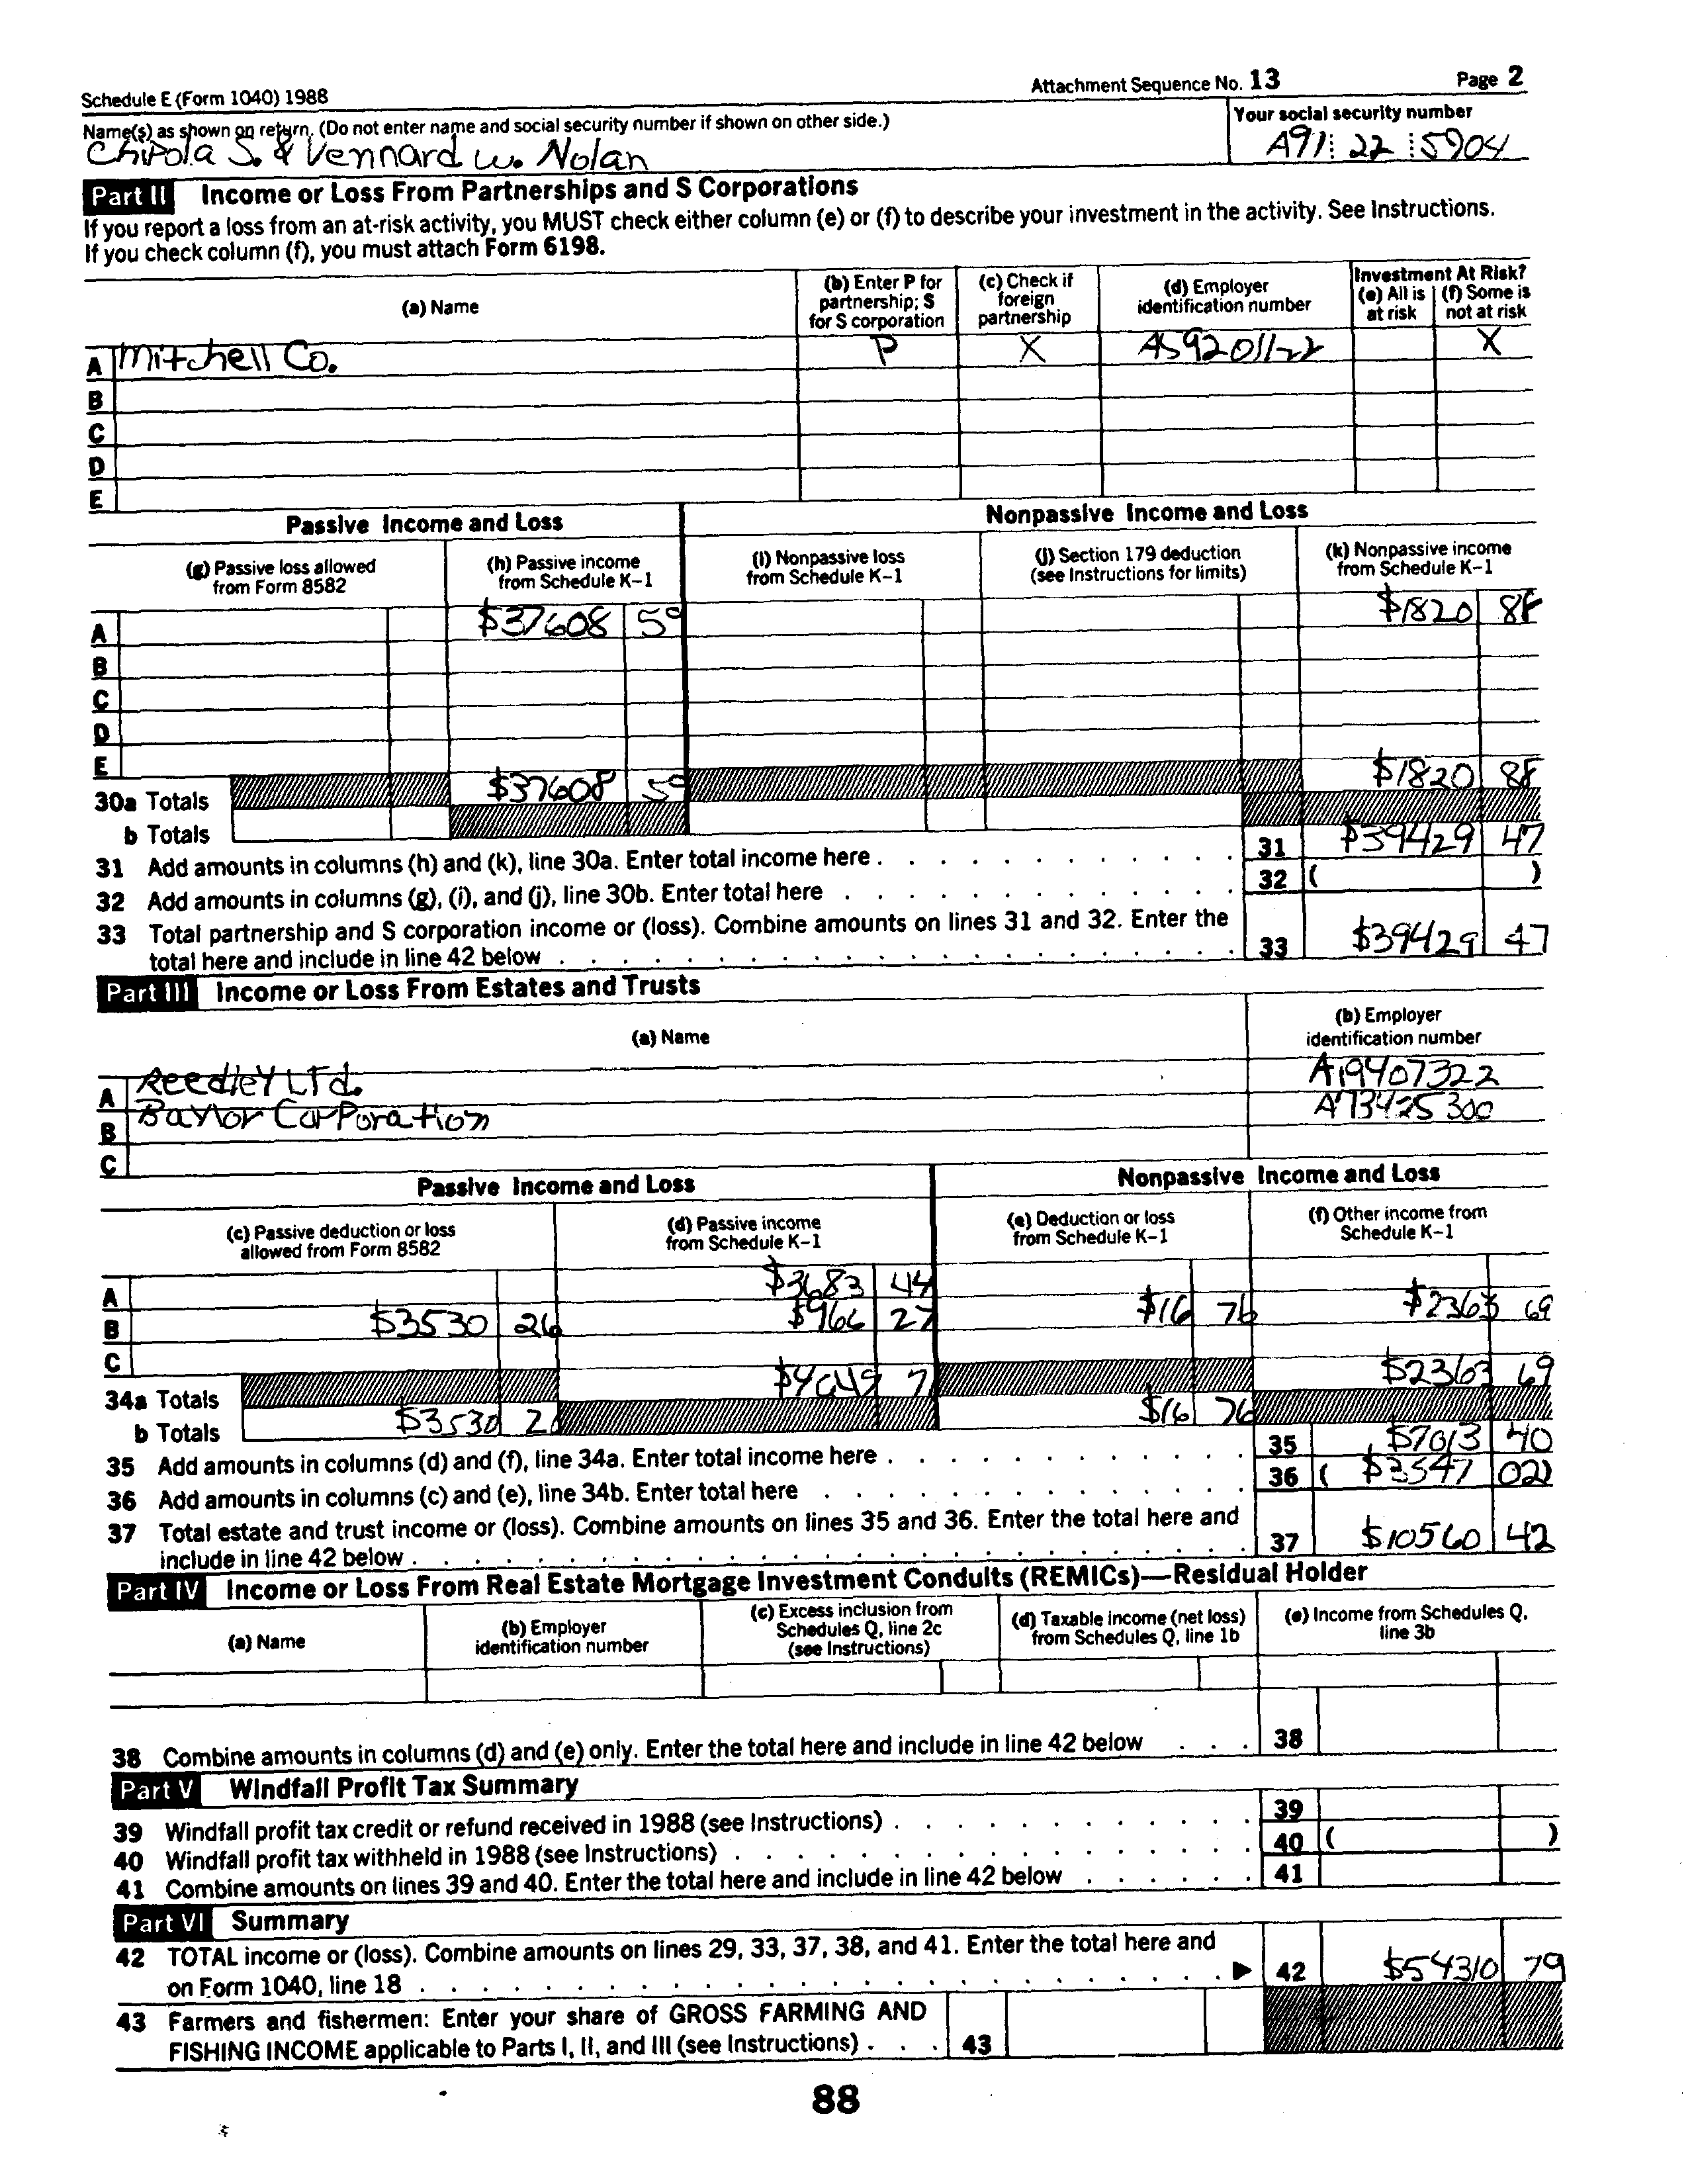 Schedule E (Form 1040) 1988 Attachment Sequence No. 13 Page 2
Name(s) as shown on return. (Do not enter name and social security number if shown on other side.) Your social security number
Chipola S. & Vennard W. Nolan A91 22 5904
Part II Income or Loss From Partnerships and S Corporations
If you report a loss from an at-risk activity, you MUST check either column (e) or (f) to describe your investment in the activity. See Instructions.
If you check column (f), you must attach Form 6198.
(a) Name (b) Enter P for partnership; S for S corporation (c) Check if foreign partnership (d) Employer identification number Investment At Risk? (e) All is at risk (f) Some is not at risk
A Mitchell Co. P X A59201122 X
B
C
D
E
Passive Income and Loss Nonpassive Income and Loss
(g) Passive loss allowed from Form 8582 (h) Passive income from Schedule K-1 (i) Nonpassive loss from Schedule K-1 (j) Section 179 deduction (see Instructions for limits) (k) Nonpassive income from Schedule K-1
A $37608 59 $1820 88
B
C
D
E
30a Totals $37608 59 $1820 88
b Totals
31 Add amounts in columns (h) and (k), line 30a. Enter total income here . 31 $39429 47
32 Add amounts in columns (g), (i), and (j), line 30b. Enter total here 32 ( )
33 Total partnership and S corporation income or (loss). Combine amounts on lines 31 and 32. Enter the
total here and include in line 42 below 33 $39429 47
Part III Income or Loss From Estates and Trusts
(a) Name (b) Employer identification number
A Reedley Ltd. A19407322
B Baylor Corporation A73425300
C
Passive Income and Loss Nonpassive Income and Loss
(c) Passive deduction or loss allowed from Form 8582 (d) Passive income from Schedule K-1 (e) Deduction or loss from Schedule K-1 (f) Other income from Schedule K-1
A $3683 44
B $3530 26 $966 27 $16 76 $2363 69
C
34a Totals $4649 71 $2363 69
b Totals $3530 26 $16 76
35 Add amounts in columns (d) and (f), line 34a. Enter total income here . 35 $7013 40
36 Add amounts in columns (c) and (e), line 34b. Enter total here 36 ( $3547 02)
37 Total estate and trust income or (loss). Combine amounts on lines 35 and 36. Enter the total here and
include in line 42 below . 37 $10560 42
Part IV Income or Loss From Real Estate Mortgage Investment Conduits (REMICs)—Residual Holder
(a) Name (b) Employer identification number (c) Excess inclusion from Schedules Q, line 2c (see Instructions) (d) Taxable income (net loss) from Schedules Q, line 1b (e) Income from Schedules Q, line 3b
38 Combine amounts in columns (d) and (e) only. Enter the total here and include in line 42 below 38
Part V Windfall Profit Tax Summary
39 Windfall profit tax credit or refund received in 1988 (see Instructions) . 39
40 Windfall profit tax withheld in 1988 (see Instructions) . 40 ( )
41 Combine amounts on lines 39 and 40. Enter the total here and include in line 42 below 41
Part VI Summary
42 TOTAL income or (loss). Combine amounts on lines 29, 33, 37, 38, and 41. Enter the total here and
on Form 1040, line 18 ▶ 42 $54310 79
43 Farmers and fishermen: Enter your share of GROSS FARMING AND
FISHING INCOME applicable to Parts I, II, and III (see Instructions) . 43
88